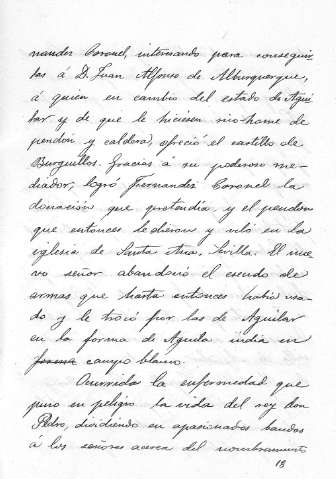 nandez Coronel, interesando para conseguir
las á D. Juan Alfonso de Alburquerque,
á quien en cambio del estado de Agui
lar y de que le hiciesen rico-home de
pendón y caldera, ofreció el castillo de
Burguillos. Gracias á su poderoso me-
diador, logró Fernandez Coronel la
donación que pretendía y el pendon
que entonces le dieron y veló en la
iglesia de Santa Ana, Sevilla. El nue
vo señor abandonó el escudo de
armas que hasta entonces había usa-
do y le trocó por las de Aguilar
en la forma de Aguila india en
campo blanco.
Ocurrida la enfermedad que
puso en peligro la vida del rey don
Pedro, dividiendo en apasionados bandos
á los señores acerca del nombramiento
18